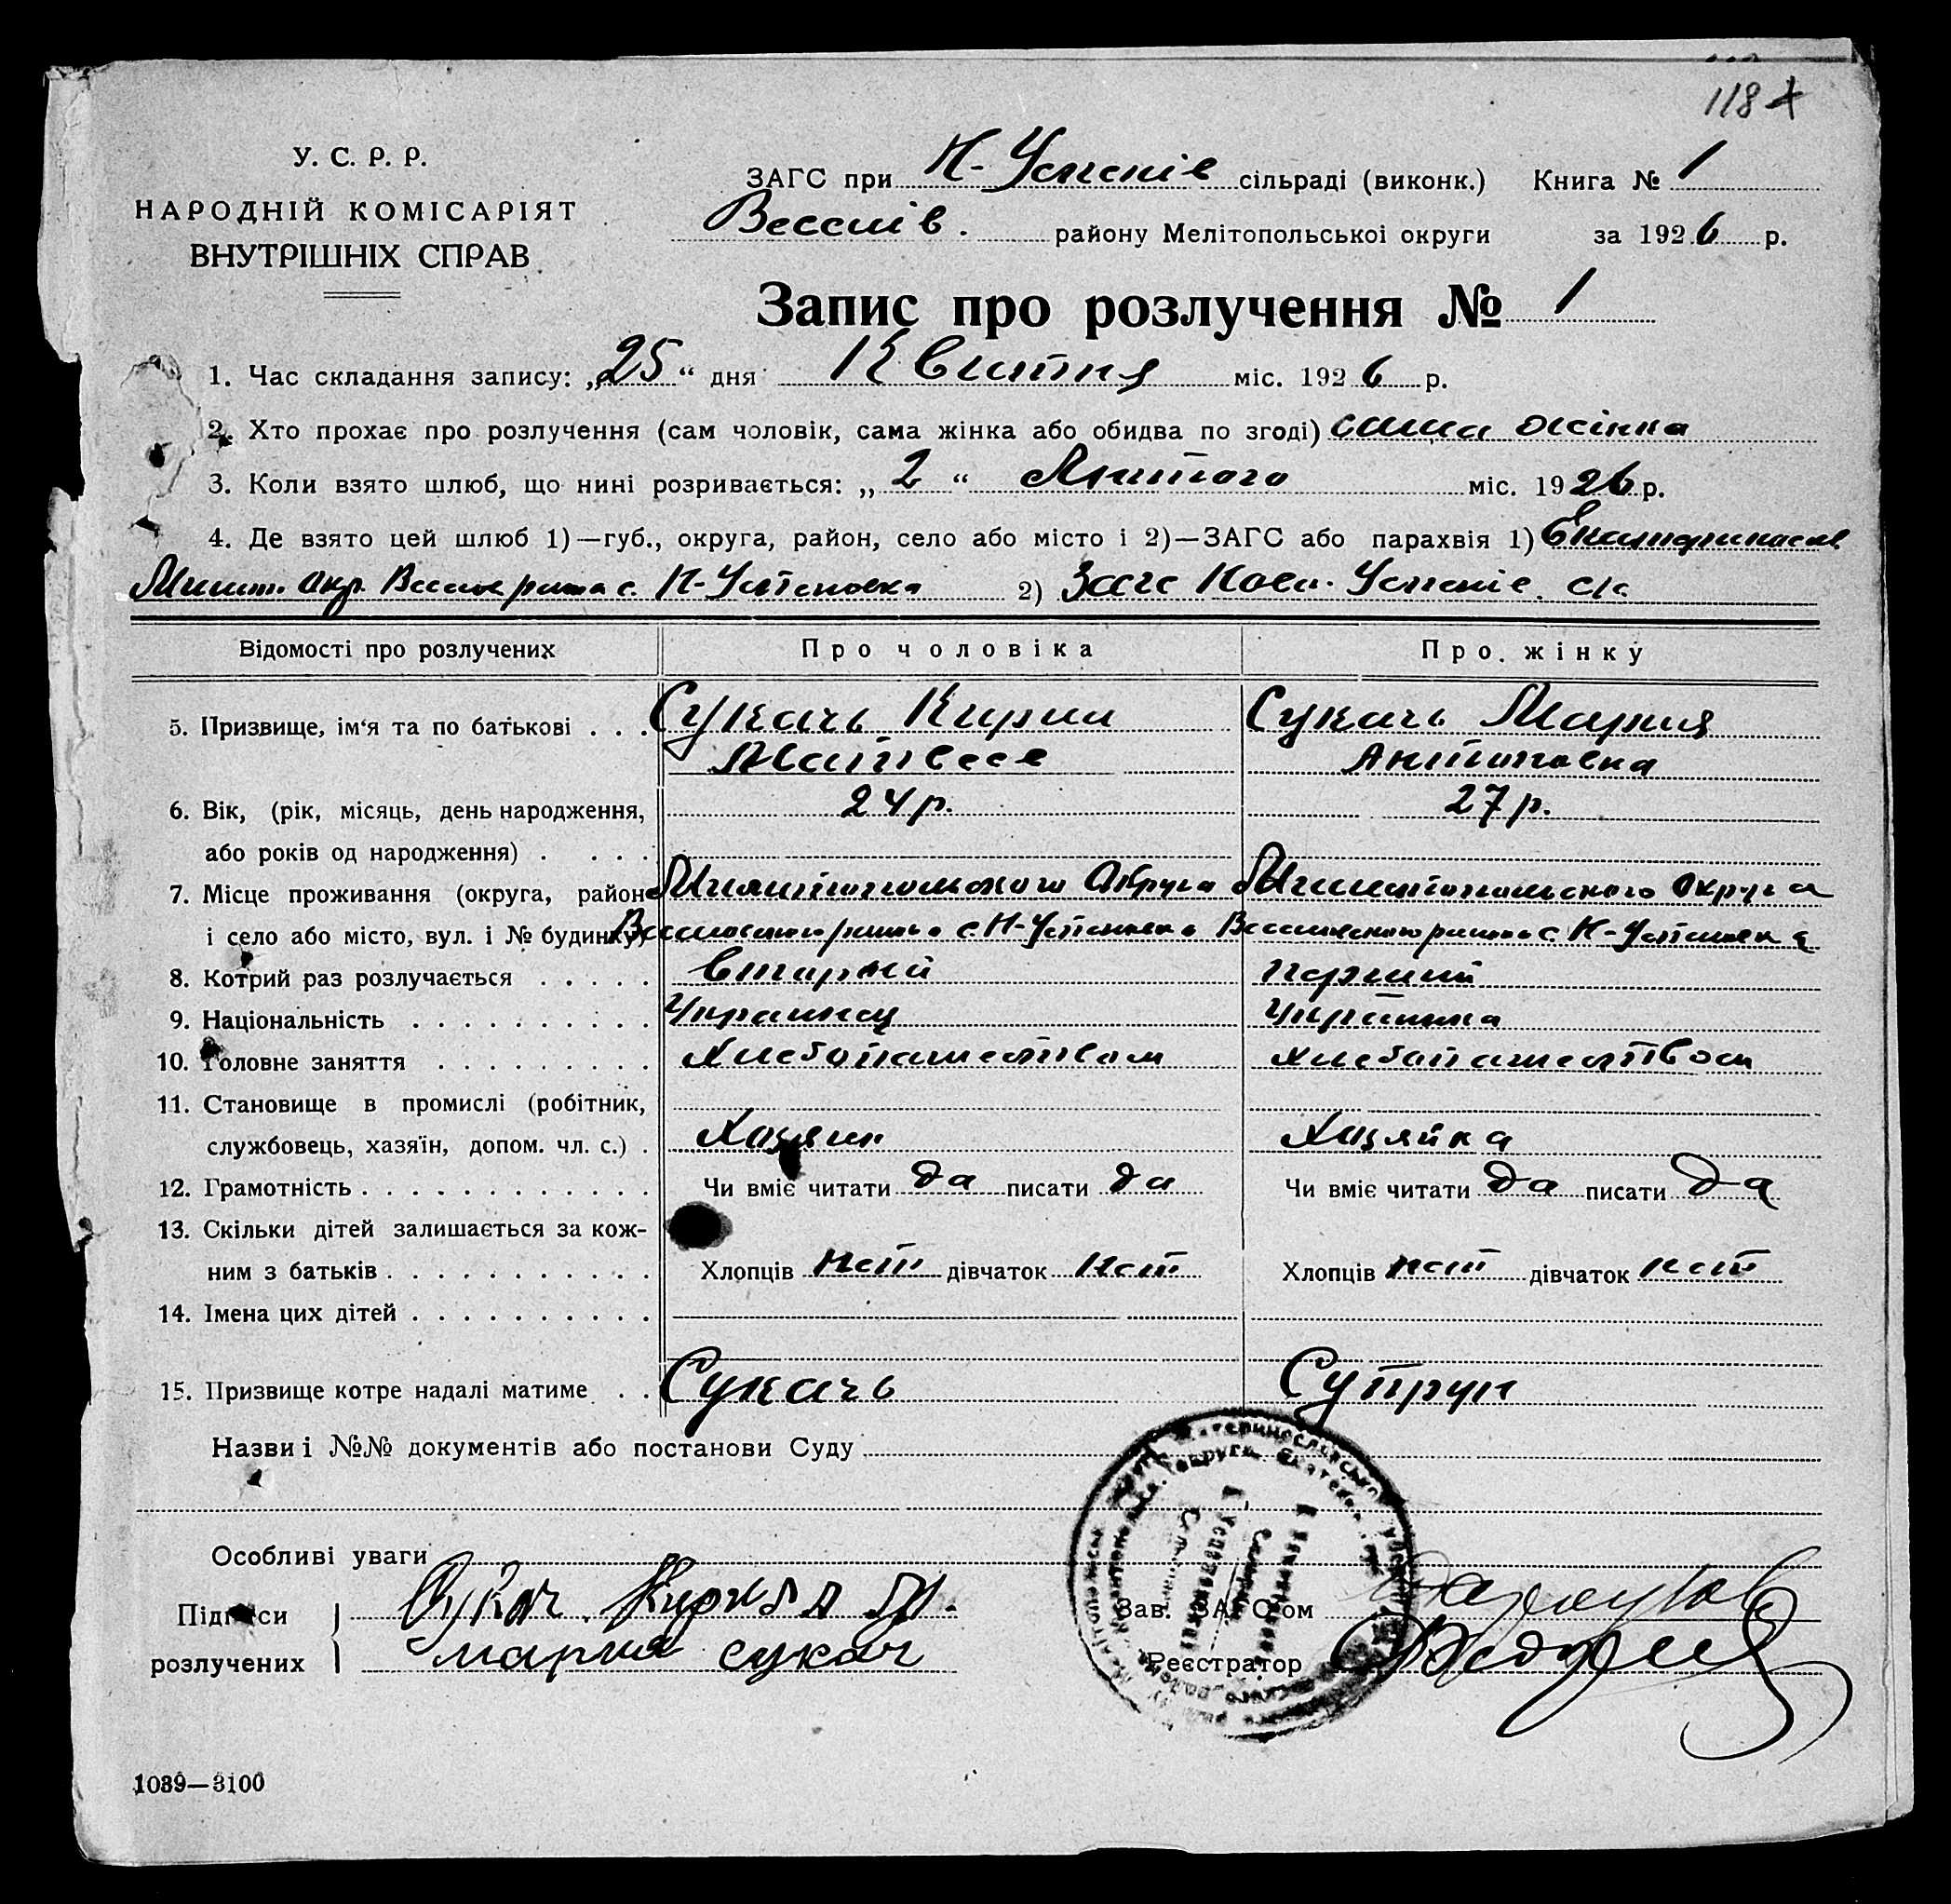 118
У. С. Р. Р.
НАРОДНІЙ КОМІСАРІЯТ
ВНУТРІШНІХ СПРАВ
ЗАГС при Н-Успенів сільраді (виконк.) Книга № 1
Веселів. району Мелітопольської округи за 1926 р.
Запис про розлучення № 1
1. Час складання запису: „25“ дня Квитня міс. 1926 р.
2. Хто прохає про розлучення (сам чоловік, сама жінка або обидва по згоді) сама жінка
3. Коли взято шлюб, що нині розривається: „2“ Лютого міс. 1926 р.
4. Де взято цей шлюб 1)—губ., округа, район, село або місто і 2)—ЗАГС або парахвія 1) Екатеринослав
Мелит. Окр. Весел района с. Н-Успеновка 2) Загс Ново-Успенів. с/с
Відомості про розлучених Про чоловіка Про жінку
5. Призвище, ім‘я та по батькові . . . Сукачь Кирил Сукачь Мария
Матвеев Антоновна
6. Вік, (рік, місяць, день народження, 24 р. 27 р.
або років од народження) . . . .
7. Місце проживання (округа, район Мелитопольского Округа Мелитопольского Округа
і село або місто, вул. і № будинку) Веселовского района с. Н-Успеновка Веселовского района с. Н-Успеновка
8. Котрий раз розлучається . . . . . вторый перший
9. Національність . . . . . . . . . . Украинец Украинка
10. Головне заняття . . . . . . . . . Хлебопашеством Хлебопашеством
11. Становище в промислі (робітник,
службовець, хазяїн, допом. чл. с.) . Хозяин Хозяйка
12. Грамотність . . . . . . . . . . . . Чи вміє читати да писати да Чи вміє читати да писати да
13. Скільки дітей залишається за кож-
ним з батьків . . . . . . . . . . . Хлопців нет дівчаток нет Хлопців нет дівчаток нет
14. Імена цих дітей . . . . . . . . . .
15. Призвище котре надалі матиме . . Сукачь Супрун
Назви і №№ документів або постанови Суду
Особливі уваги
Підписи Сукач Кирило М. Зав. ЗАГС‘ом
розлучених Мария Сукач Реєстратор
1089—3100